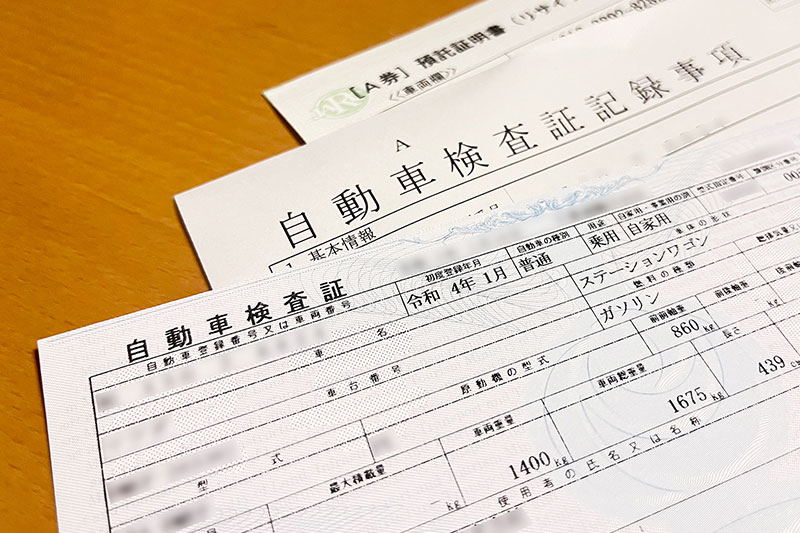 [A券] 預託証明書 (リサイ
《車両欄》
A
自動車検査証記録事項
1. 基本情報
自動車検査証
自動車登録番号又は車両番号
初度登録年月
令和 4年 1月
自動車の種別
普通
用途
乗用
自家用・事業用の別
自家用
車体の形状
ステーションワゴン
型式指定番号
類別区分番号
車名
燃料の種類
ガソリン
車台番号
前前軸重
860 kg
前後軸重
原動機の型式
長さ
439
型式
車両総重量
1675 kg
車両重量
1400 kg
最大積載量
- kg
使用者の氏名又は名称